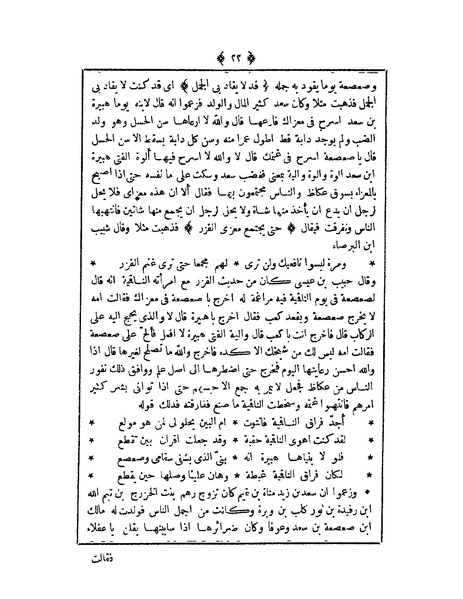 ﴿ ٢٢ ﴾
وصعصعة يوما يقود به جمله ﴿ قد لا يقاد بي الجمل ﴾ اي قد كنت لا يقاد بي
الجمل فذهبت مثلا وكان سعد كثير المال والولد فزعموا انه قال لابنه يوما هبيرة
بن سعد اسرح في معزاك فارعها قال والله لا ارعاها سن الحسل وهو ولد
الضب ولم يوجد دابة قط اطول عمرا منه وسن كل دابة يسقط الا سن الحسل
قال يا صعصعة اسرح في غنمك قال لا والله لا اسرح فيها ألوة الفتى هبيرة
ابن سعد الوة والوة والية بمعنى فغضب سعد وسكت على ما نفسه حتى اذا اصبح
بالمعزاء بسوق عكاظ والناس مجتمعون بها فقال ألا ان هذه معزاي فلا يحل
لرجل ان يدع ان يأخذ منها شاة ولا يحل لرجل ان يجمع منها شاتين فانتهبها
الناس وتفرقت فيقال ﴿ حتى يجتمع معزى الفزر ﴾ فذهبت مثلا وقال شبيب
ابن البرصاء
* ومرة ليسوا نافعيك ولن ترى * لهم مجمعا حتى ترى غنم الفزر *
وقال حبيب بن عيسى كان من حديث الفزر مع امرأته الناقية انه قال
لصعصعة في يوم الناقية فيه مراغمة له اخرج يا صعصعة في معزاك فقالت امه
لا يخرج صعصعة ويقعد كعب فقال اخرج يا هبيرة قال لا والذي يحجج اليه على
الركاب قال فاخرج انت يا كعب قال والية الفتى هبيرة لا افعل فألح على صعصعة
فقالت امه ليس لك من شيخك الا كده فاخرج والله ما تصلح لغيرها قال اذا
والله احسن رعايتها اليوم فخرج حتى اضطرها الى اصل علم ووافق ذلك نفور
الناس من عكاظ فجعل لا يمر به جمع الا حبسهم حتى اذا توانى بشر كثير
امرهم فانتهبوا غنمه وسخطت الناقية ما صنع ففارقته فذلك قوله
* أجد فراق الناقية فانتوت * ام البين يحلولي لمن هو مولع *
* لقد كنت اهوى الناقية حقبة * وقد جعلت اقران بين تقطع *
* فلو لا بنياها هبيرة انه * بني الذي يشفي سقامي وصعصع *
* لكان فراق الناقية غبطة * وهان علينا وصلها حين يقطع *
* وزعموا ان سعد بن زيد مناة بن تميم كان تزوج رهم بنت الخزرج بن تيم الله
ابن رفيدة بن ثور كلب بن وبرة وكانت من اجمل الناس فولدت له مالك
ابن صعصعة بن سعد وعوفا وكان ضرائرها اذا سابينها يقلن يا عفلاء
فقالت